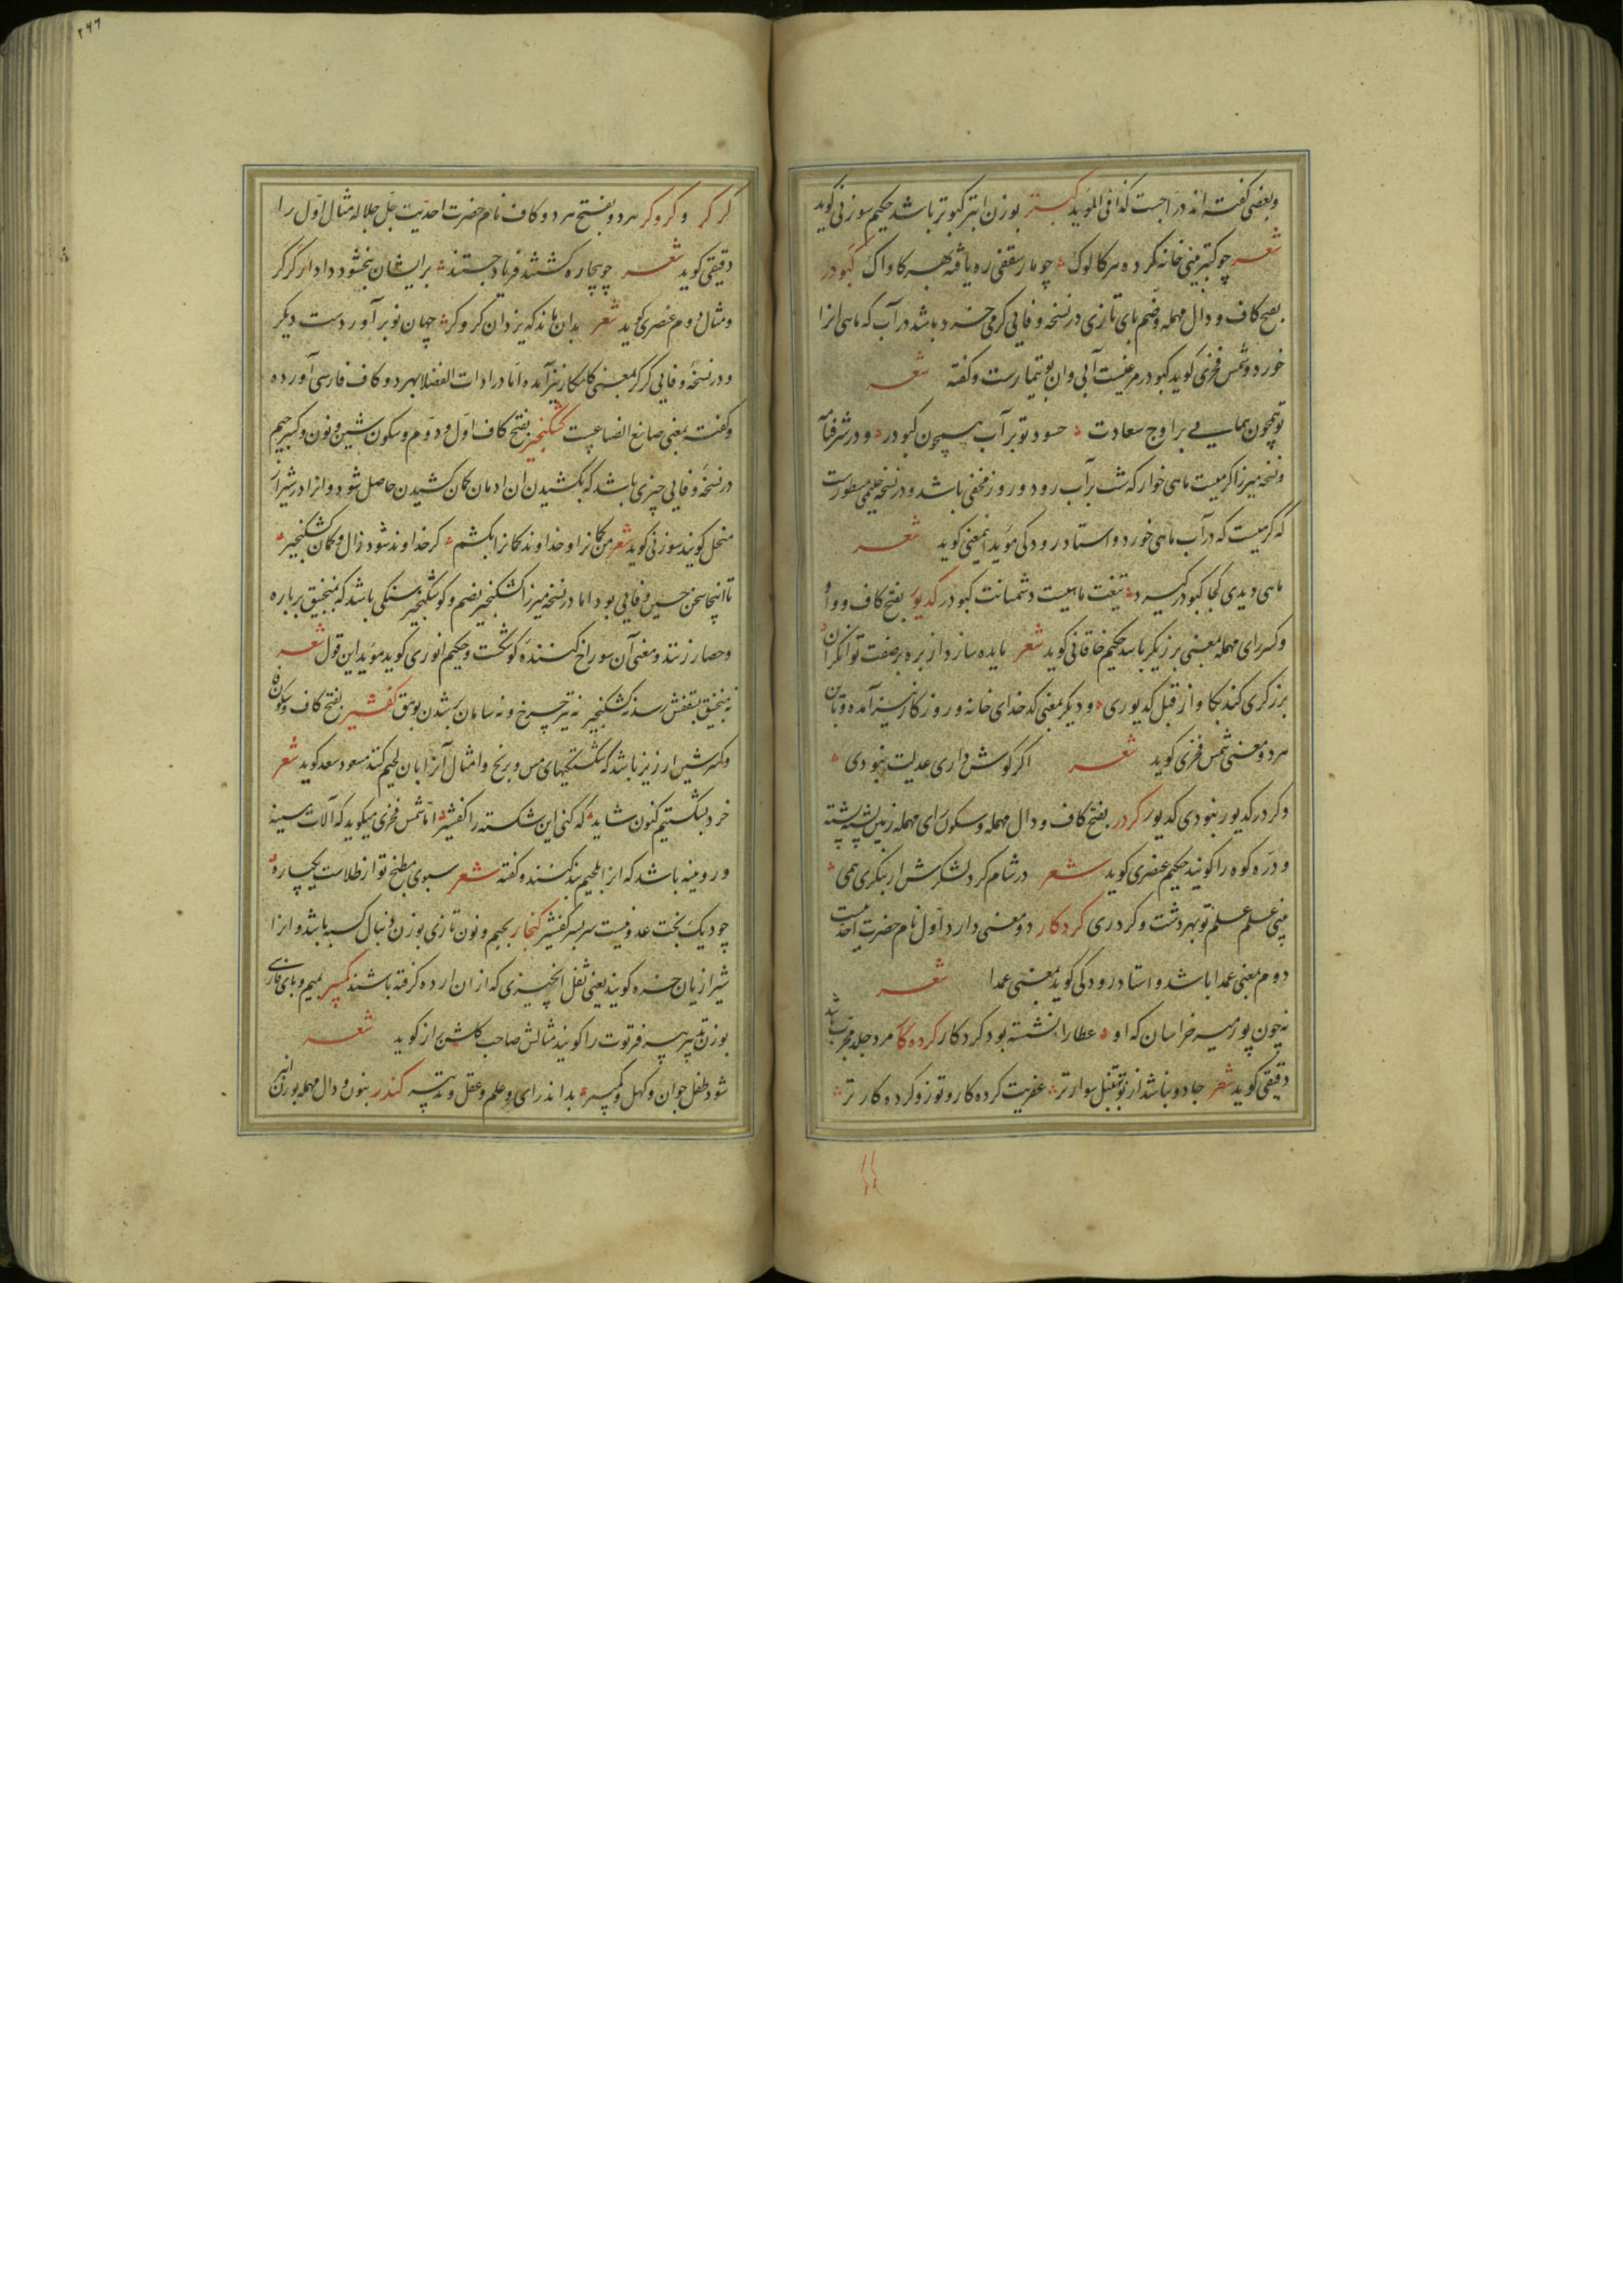 وبعضی گفته اند دراجست کذا فی المؤید کبتر بوزن ابتر کبوتر باشد حکیم سوزنی گوید
شعر چو کبتر بینی خانه کرده هر کالوک چو مار سقفی ره یافته بهر کاواک کبودر
بفتح کاف و دال مهمله وضم بای تازی در نسخه وفایی کرمی خرد باشد در آب که ماهی انرا
خورد و شمس فخری گوید کبودر مرغیست آبی وان بوتیمارست و گفته شعر
تو همچون همایی بر اوج سعادت حسود تو بر آب همچون کبودر و در شرفنامه
و نسخه میرزا کرمیست ماهی خوار که شب بر آب رود و روز مخفی باشد و در نسخه حلیمی مسطورست
که کرمیست که در آب ماهی خورد و استاد رودکی مؤید اینمعنی گوید شعر
ماهی دیدی کجا کبودر گیرد تیغت ماهیست دشمنانت کبودر کدیور بفتح کاف و واو
وکسر رای مهمله بمعنی برزیگر باشد حکیم خاقانی گوید شعر بایده سازد از بره بر صفت توانگران
برزگری کند بکاو از قبل کدیوری و دیگر بمعنی کدخدای خانه و روزگار نیز آمده و باین
هر دو معنی شمس فخری گوید شعر اگر گوش داری عدلیت نبودی
وکردر کدیور نبودی کدیور کردر بفتح کاف و دال مهمله و سکون رای مهمله زمین پشته پشته
و دره کوه را گویند حکیم عنصری گوید شعر در شام کرد لشکرش ار بنگری همی
بینی علم علم تو بهر دشت و کردری کردکار دو معنی دارد اول نام حضرت احدیت
دوم بمعنی عمدا باشد و استاد رودکی گوید بمعنی عمدا شعر
نه چون پور میر خراسان که او عطارا نشسته بود کردکار کرده کار مرد جلد مجرب باشد
دقیقی گوید شعر جادو نباشد از تو بتنبل سوارتر عفریت کرده کار و تو زو کرده کارتر
۲۶۶
کرکر و کروکر هر دو بفتح هر دو کاف نام حضرت احدیت جل جلاله مثال اول را
دقیقی گوید شعر چو بیچاره گشتند فریاد جستند بر ایشان ببخشود دادار کرکر
ومثال دوم عنصری گوید شعر بدان ماند که یزدان کروکر جهان نو بر آورد ست دیگر
و در نسخه وفایی کرکر بمعنی کامکار نیز آمده اما در ادات الفضلا بهر دو کاف فارسی آورده
و گفته بمعنی صانع الصنایع است کشکنجیر بفتح کاف اول و دوم و سکون شین و نون و کسر جیم
در نسخه وفایی چیزی باشد که بکشیدن ان ادمان کمان کشیدن حاصل شود و انرا در شیراز
منحل گویند سوزنی گوید شعر من کمانرا و خداوند کمانرا بکشم گر خداوند شود زال و کمان کشکنجیر
تا اینجا سخن حسین وفایی بود اما در نسخه میرزا کشکنجیر بضم و کوشکنجیر سنگی باشد که بمنجنیق بر باره
وحصار زنند و معنی آن سوراخ کننده کوشکست و حکیم انوری گوید مؤید این قول شعر
نه منجنیق بسقفش رسد نه کشکنجیر نه تیر چرخ و نه سامان بر شدن بوهق کفشیر بفتح کاف و سکون فا
وکسر شین ارزیز باشد که شکستگیهای مس و برنج و امثال آنرا بان لحیم کنند مسعود سعد گوید شعر
خرد بشکستیم کنون شاید که کنی این شکسته را کفشیر اما شمس فخری میگوید که آلات مسینه
و رویینه باشد که انرا بلحیم بند کنند و گفته شعر سبوی مطبخ تو از طلاست یکپاره
چو دیگ بخت عدو نیست سربسر کفشیر کنجار بجیم و نون تازی بوزن دنبال کسبه باشد و انرا
شیرازیان خره گویند یعنی ثفل انچیزی که از ان ارده گرفته باشند کمپیر بمیم و بای فارسی
بوزن تدبیر پیر فرتوت را گویند مثالش صاحب گلشن راز گوید شعر
شود طفل جوان و کهل و کمپیر بداند رای و علم و عقل و تدبیر کندر بنون و دال مهمله بوزن انبر